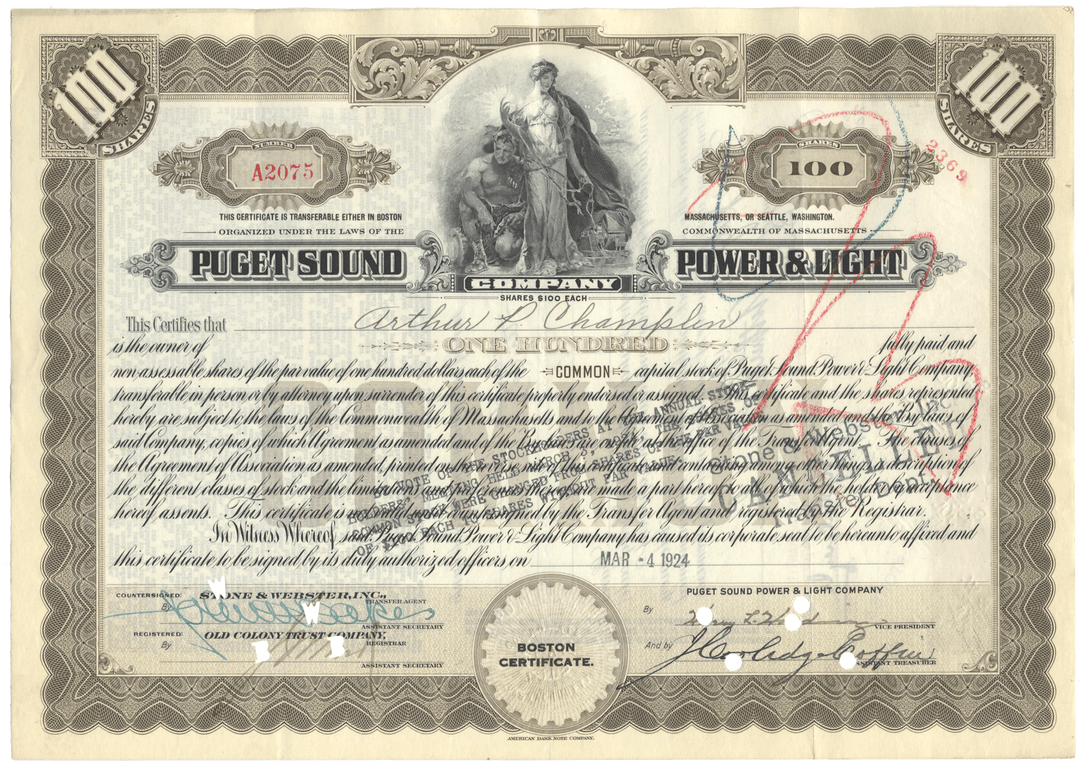 100
SHARES
100
SHARES
NUMBER
A2075
SHARES
100
2369
THIS CERTIFICATE IS TRANSFERABLE EITHER IN BOSTON MASSACHUSETTS, OR SEATTLE, WASHINGTON.
ORGANIZED UNDER THE LAWS OF THE COMMONWEALTH OF MASSACHUSETTS
PUGET SOUND POWER & LIGHT
COMPANY
SHARES $100 EACH
This Certifies that Arthur P. Champlin
is the owner of ONE HUNDRED fully paid and
non-assessable shares of the par value of one hundred dollars each of the COMMON capital stock of Puget Sound Power & Light Company
transferable in person or by attorney upon surrender of this certificate properly endorsed or assigned. This certificate and the shares represented
hereby are subject to the laws of the Commonwealth of Massachusetts and to the Agreement of Association as amended and the By-Laws of
said Company, copies of which Agreement as amended and of the By-Laws are on file at the office of the Transfer Agent. The clauses of
the Agreement of Association as amended, printed on the reverse side of this certificate and containing among other things a description of
the different classes of stock and the limitations and preferences are made a part hereof to all of which the holder by acceptance
hereof assents. This certificate is not valid until countersigned by the Transfer Agent and registered by the Registrar.
In Witness Whereof, said Puget Sound Power & Light Company has caused its corporate seal to be hereunto affixed and
this certificate to be signed by its duly authorized officers on MAR -4 1924
BY VOTE OF THE STOCKHOLDERS AT THE ANNUAL STOCK-
HOLDERS' MEETING HELD MARCH 3, THE SHARES OF
COMMON STOCK WERE CHANGED FROM SHARES OF THE PAR VALUE
OF $100 EACH TO SHARES WITHOUT PAR VALUE.
Stone & Webster, Inc
CANCELLED
Transfer Dept.
COUNTERSIGNED:
STONE & WEBSTER, INC.,
TRANSFER AGENT
By
ASSISTANT SECRETARY
REGISTERED:
OLD COLONY TRUST COMPANY,
REGISTRAR
By
ASSISTANT SECRETARY
BOSTON
CERTIFICATE.
PUGET SOUND POWER & LIGHT COMPANY
By
VICE PRESIDENT
And by J Coolidge Coffin
ASSISTANT TREASURER
AMERICAN BANK NOTE COMPANY.